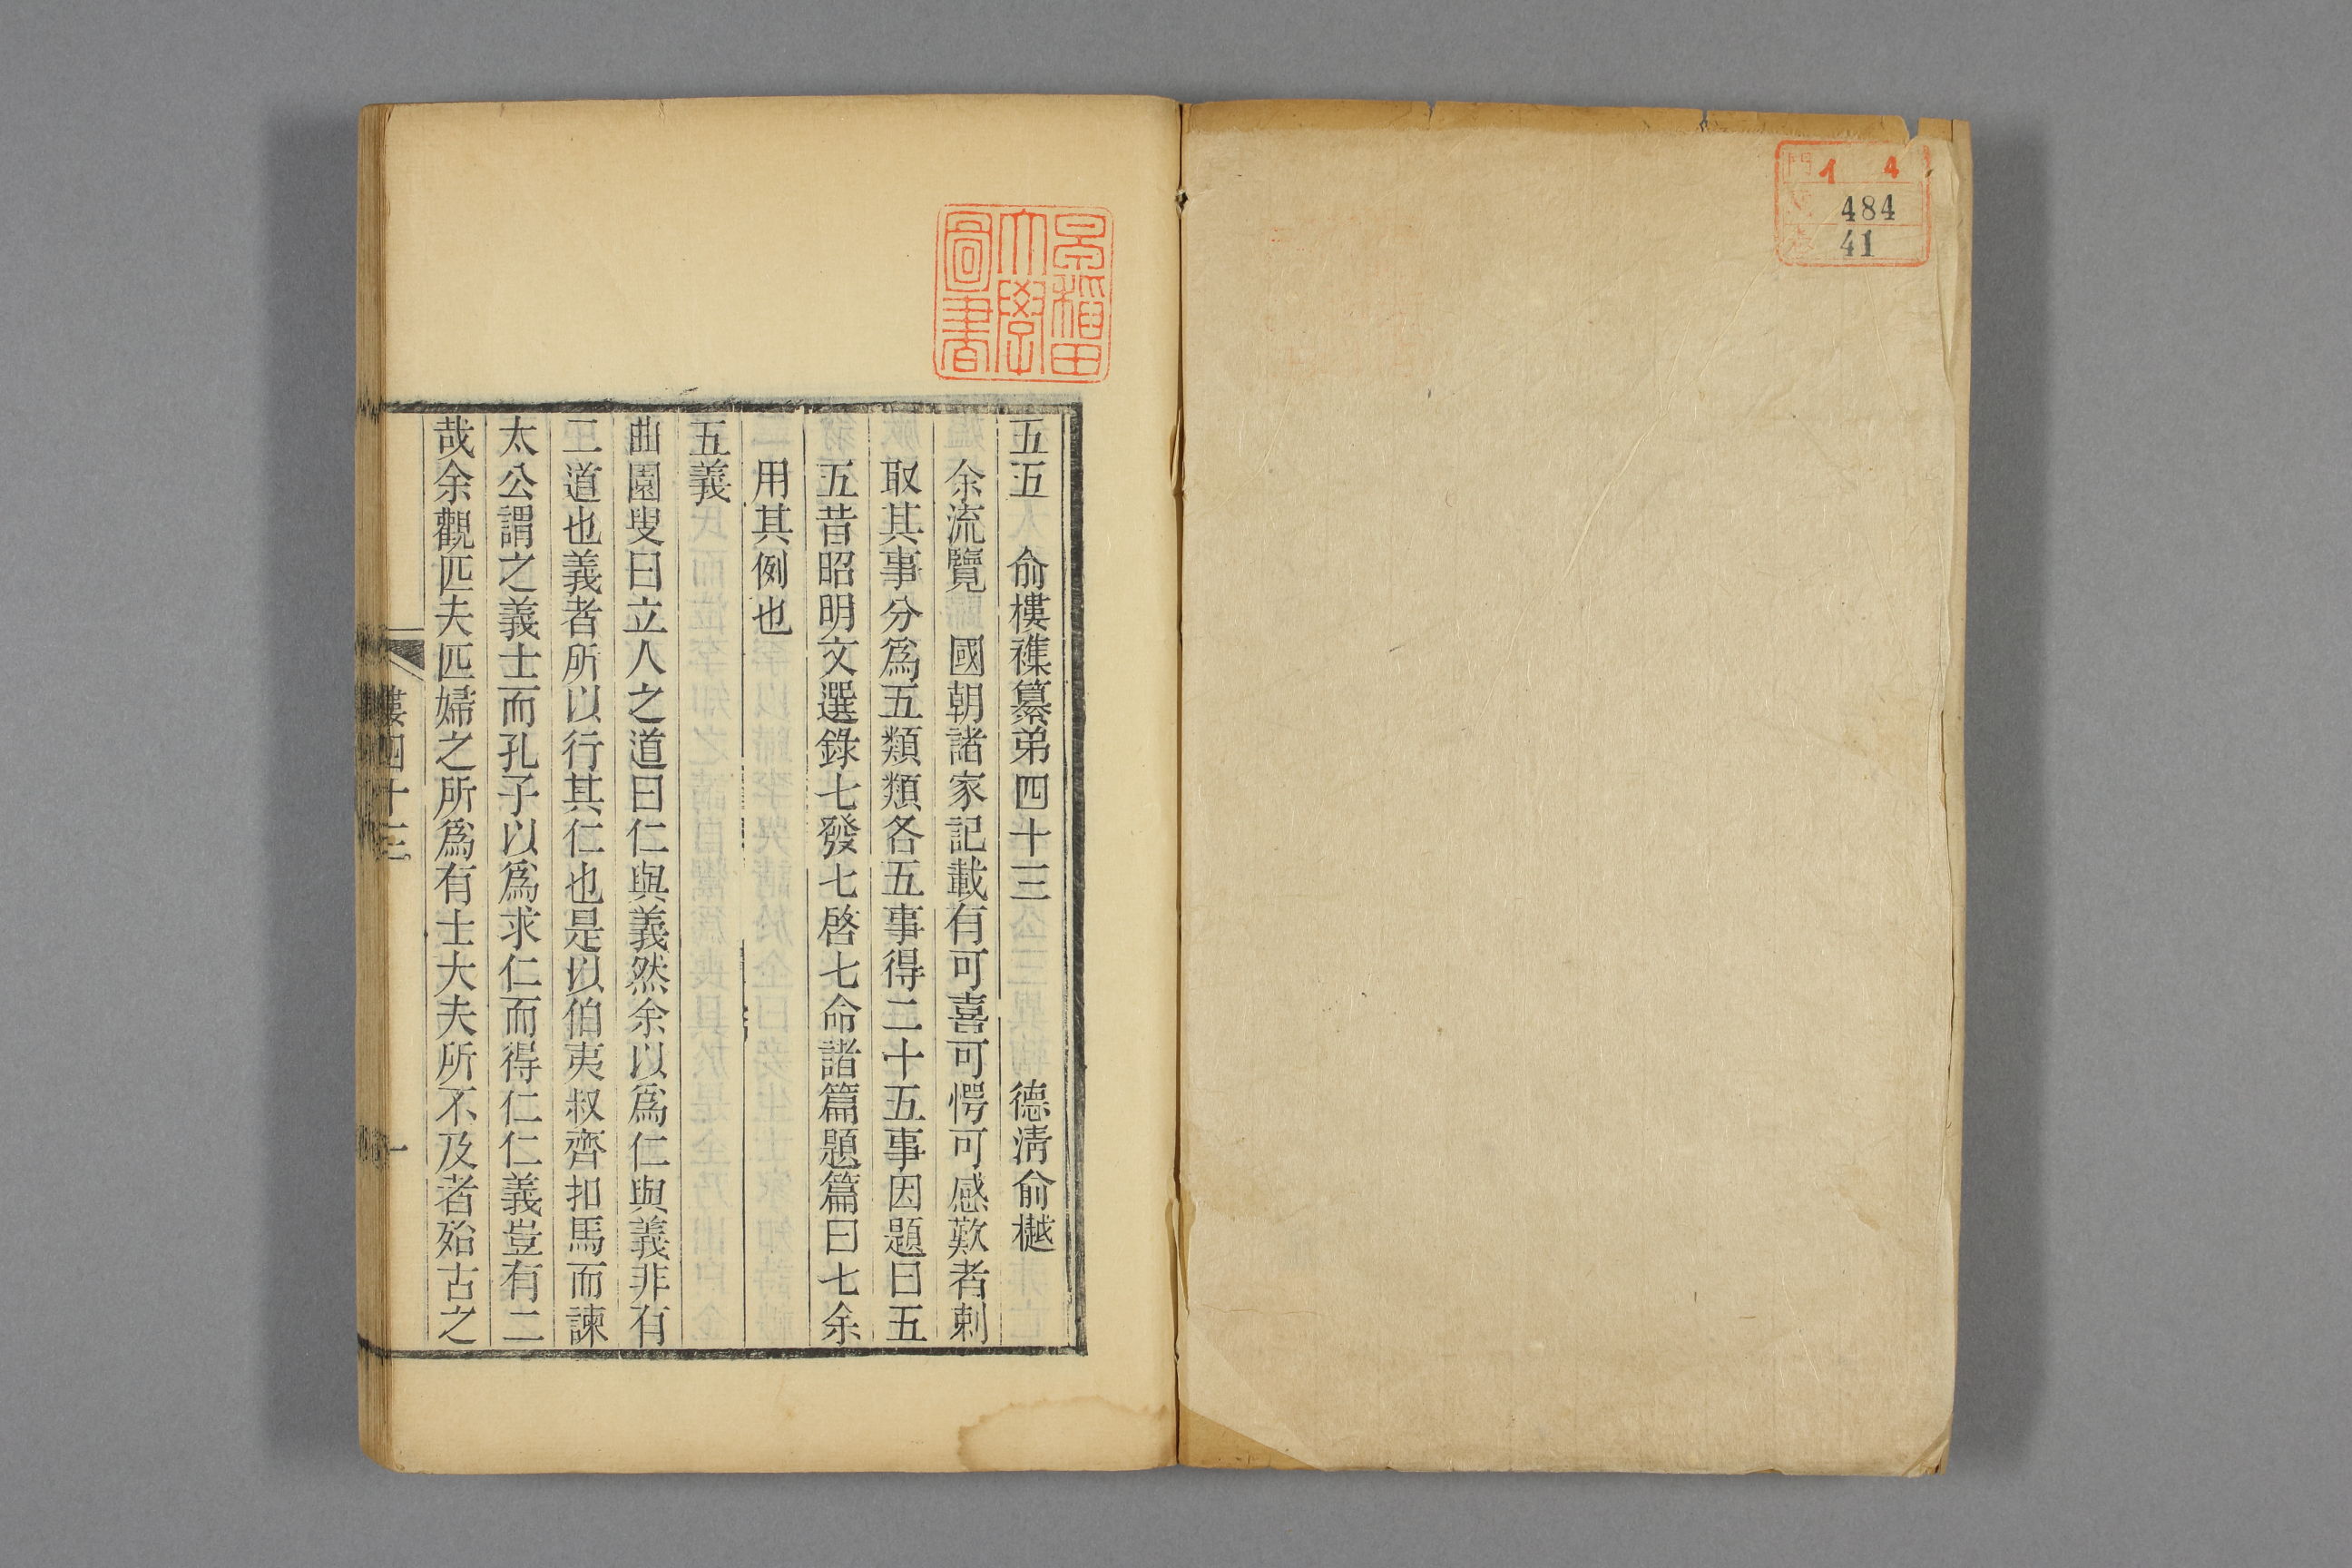 門 1 4
484
41
早稲田
大學
圖書
五五　俞樓襍纂弟四十三　德淸俞樾
余流覽　國朝諸家記載有可喜可愕可感歎者剌
取其事分爲五類類各五事得二十五事因題曰五
五昔昭明文選錄七發七啓七命諸篇題篇曰七余
用其例也
五義
曲園叟曰立人之道曰仁與義然余以爲仁與義非有
二道也義者所以行其仁也是以伯夷叔齊扣馬而諫
太公謂之義士而孔子以爲求仁而得仁仁義豈有二
哉余觀匹夫匹婦之所爲有士大夫所不及者殆古之
樓四十三　一